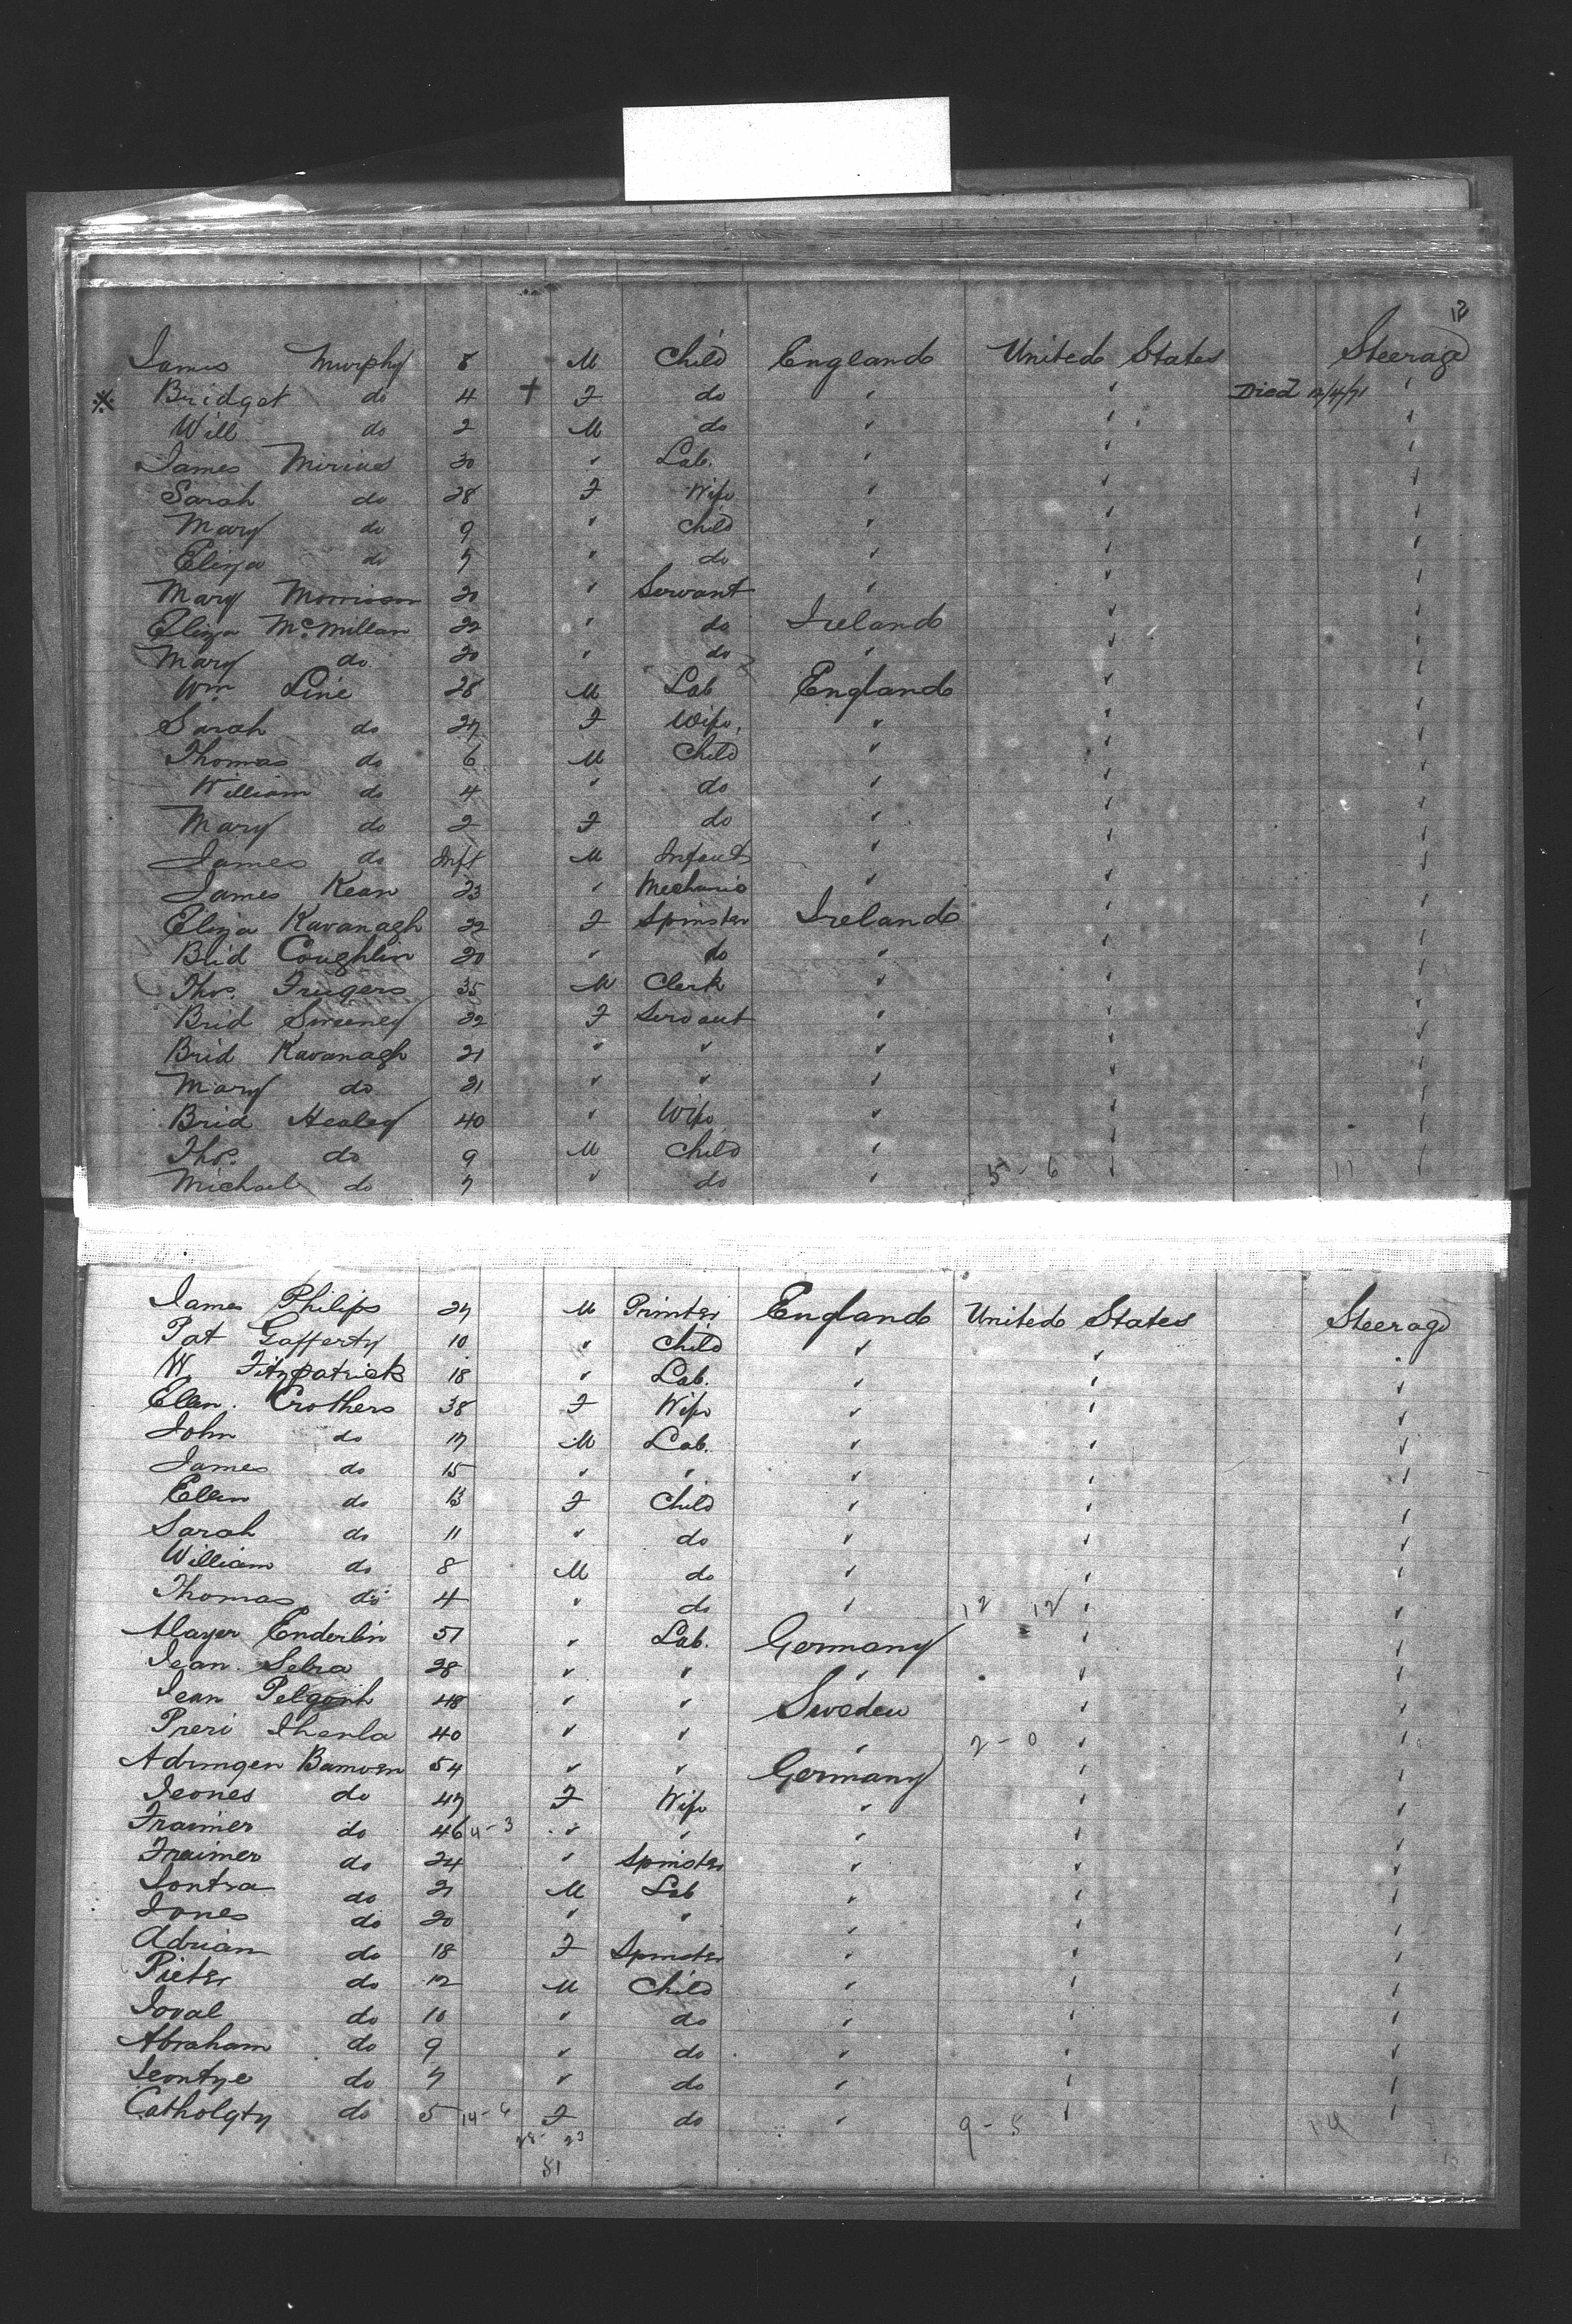 12
James Murphy 8 M Child England United States Steerage
Bridget do 4 † F do " " Died 12/4/71 "
Will do 2 M do " " "
James 30 " Lab. " " "
Sarah do 28 F Wife " " "
Mary do 9 " Child " " "
Eliza do 7 " do " " "
Mary Morrison 20 " Servant " " "
Eliza McMillan 22 " do Ireland " "
Mary do 20 " do " " "
Wm Line 28 M Lab England " "
Sarah do 27 F Wife " " "
Thomas do 6 M Child " " "
William do 4 " do " " "
Mary do 2 F do " " "
James do Inft M Infant " " "
James Kean 23 " Mechanic " " "
Eliza Kavanagh 22 F Spinster Ireland " "
Brid Coughlin 20 " do " " "
Thos. 35 M Clerk " " "
Brid Sweeney 22 F Servant " " "
Brid Kavanagh 21 " " " " "
Mary do 21 " " " " "
Brid Healey 40 " Wife " " "
Thos. do 9 M Child " " "
Michael do 7 " do " 5 - 6 " 11 "
James Philips 27 M Printer England United States Steerage
Pat Gafferty 10 " Child " " "
W Fitzpatrick 18 " Lab. " " "
Ellen Crothers 38 F Wife " " "
John do 17 M Lab. " " "
James do 15 " " " " "
Ellen do 13 F Child " " "
Sarah do 11 " do " " "
William do 8 M do " " "
Thomas do 4 " do " 12 12 " "
Mayer Enderlin 51 " Lab. Germany " "
Jean Selra 28 " " " " "
Jean 48 " " Sweden " "
Preri 40 " " " 2 - 0 " "
Adringen Bamven 54 " " Germany " "
Jeones do 47 F Wife " " "
Fraimer do 46 4 - 3 " " " " "
Fraimer do 24 " Spinster " " "
do 21 M Lab " " "
Jones do 20 " " " " "
Adrian do 18 F Spinster " " "
Pieter do 12 M Child " " "
Joval do 10 " do " " "
Abraham do 9 " do " " "
Leontye do 7 " do " " "
Catholgty do 5 14 - 6 F do " 9 - 5 " 14 "
28 - 23
51